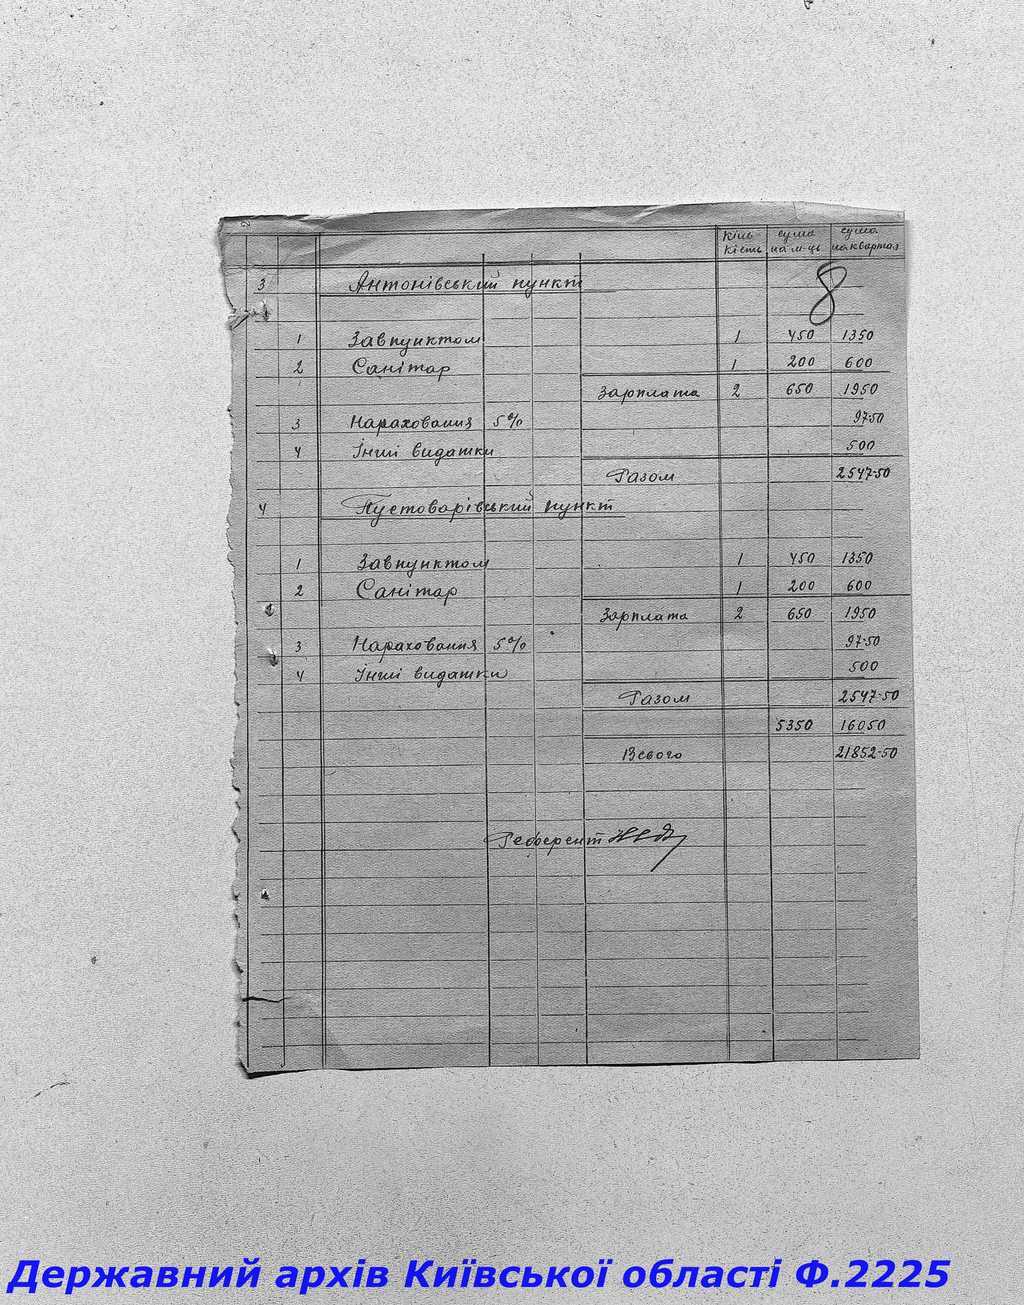 2
Кіль- сума сума
кість на м-ць на квартал
8
3 Антонівський пункт
1 Завпунктом 1 450 1350
2 Санітар 1 200 600
Зарплата 2 650 1950
3 Нараховання 5% 97-50
4 Інші видатки 500
Разом 2547-50
4 Пустоварівський пункт
1 Завпунктом 1 450 1350
2 Санітар 1 200 600
Зарплата 2 650 1950
3 Нараховання 5% 97-50
4 Інші видатки 500
Разом 2547-50
5350 16050
Всього 21852-50
Референт
Державний архів Київської області Ф.2225